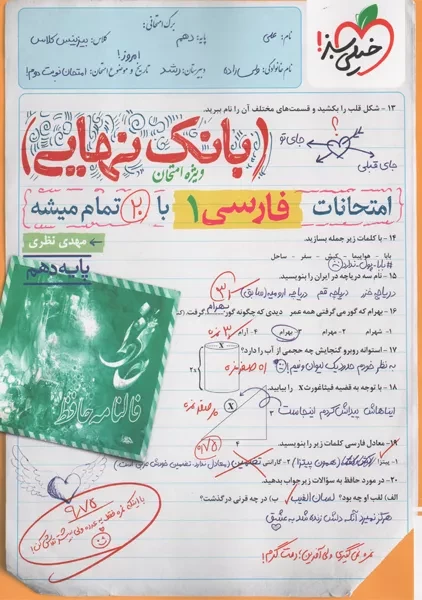 خیلی سبز!
برگ امتحانی:
نام: علی
پایه: دهم
کلاس: بیزینس کلاس
امروز!
نام خانوادگی:
دبیرستان: رشد
تاریخ و موضوع امتحان: امتحان نوبت دوم!
۱۳ - شکل قلب را بکشید و قسمت‌های مختلف آن را نام ببرید.
؟
جای تو
جای قبلی
(بانک نهایی)
ویژه امتحان
امتحانات فارسی ۱ با ۲۰ تمام میشه
مهدی نظری
پایه دهم
۱۴ - با کلمات زیر جمله بسازید.
بابا - هواپیما - کیش - سفر - ساحل
#بابا_پول_نداره
۱۵ - نام سه دریاچه در ایران را بنویسید.
دریاچه خزر دریاچه قم دریاچه ارومیه (سابق)
۱۶ - بهرام که گور می‌گرفتی همه عمر دیدی که چگونه گور گرفت.
بهرام
۱- شهرام ۲- بهرام ۴- آرام
۳ نمره
۱۷ - استوانه روبرو گنجایش چه حجمی از آب را دارد؟
به نظر خودم حدود یک لیوان و نیم!
X
۲۰
۱۸ - با توجه به قضیه فیثاغورث X را بیابید.
ایناهاش پیداش کردم اینجاست
X
۳
۴
صفر نمره
۱۹ - معادل فارسی کلمات زیر را بنویسید.
۱- پیتزا (همون پیتزا) ۲- گارانتی تضمین
۲۰ - در مورد حافظ به سؤالات زیر جواب بدهید.
الف) لقب او چه بود؟ لسان الغیب ب) در چه قرنی درگذشت؟
هرگز نمیرد آنکه دلش زنده شد به عشق
فالنامه حافظ
۹/۷۵
نمره نمی‌گیری ولی آفرین! دمت گرم!